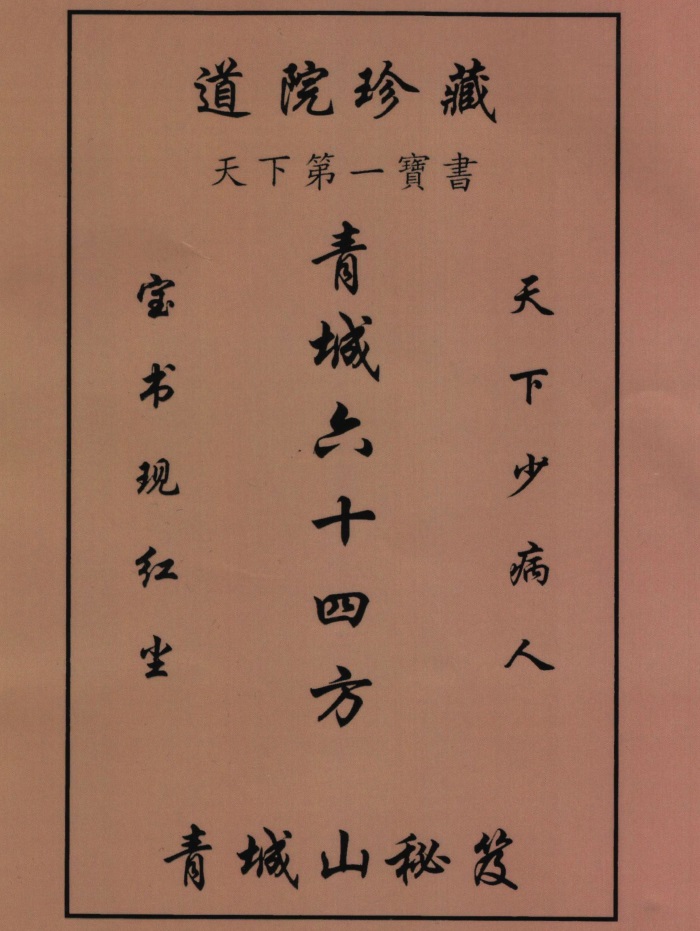 道院珍藏
天下第一寶書
青城六十四方
宝书现红尘
天下少病人
青城山秘笈